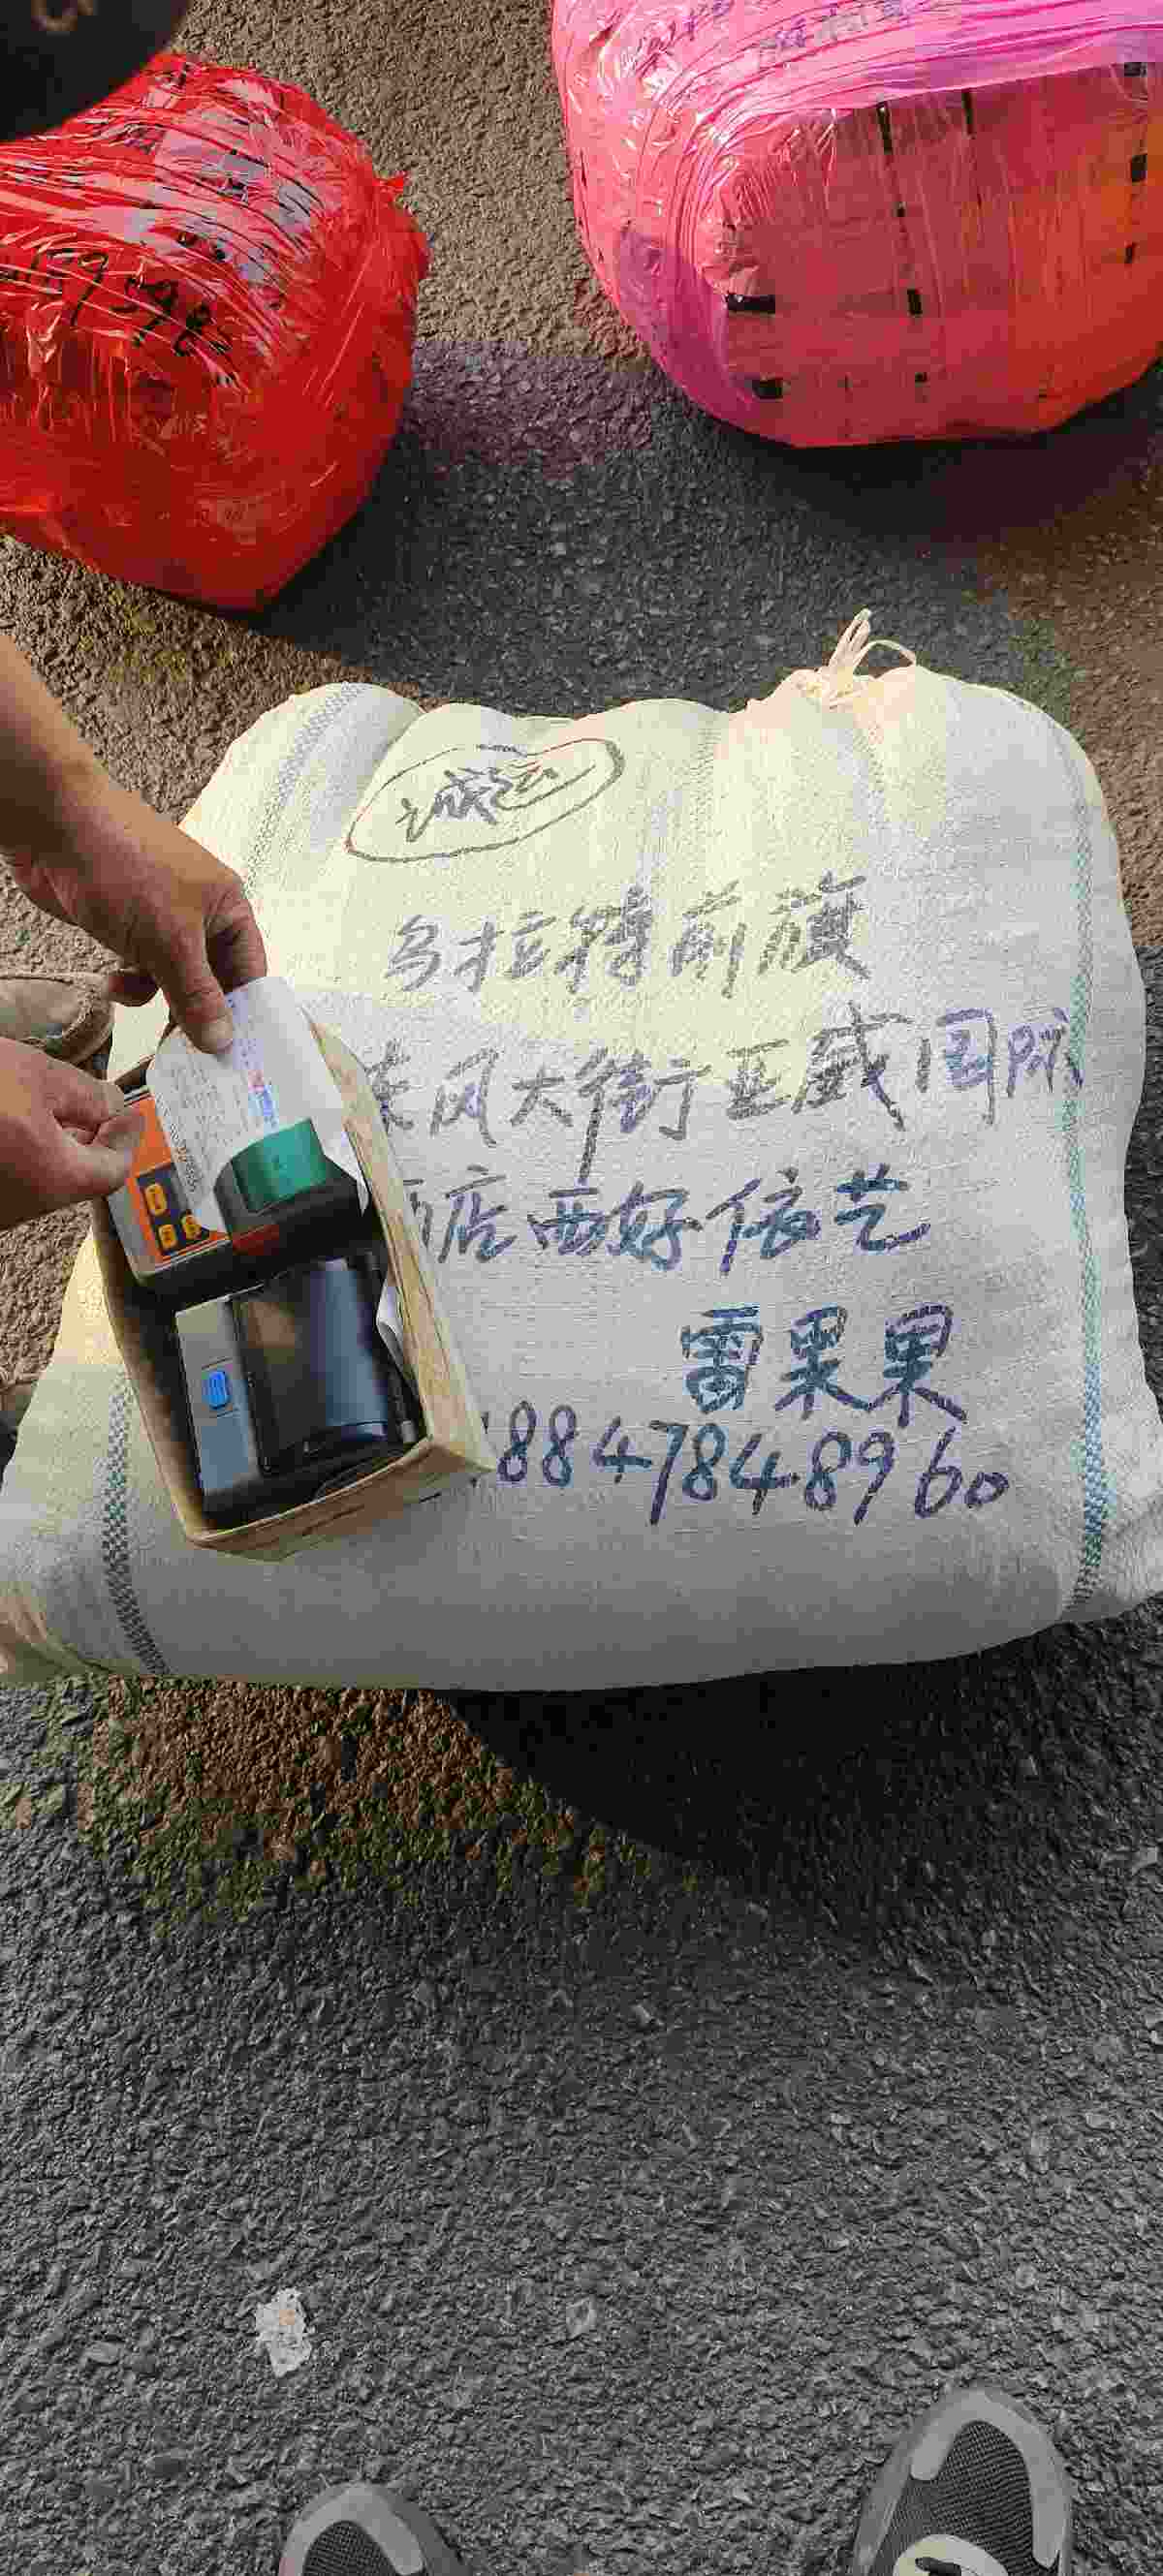 诚运
乌拉特前旗
东风大街亚威国际
酒店西好依艺
雷果果
18847848960